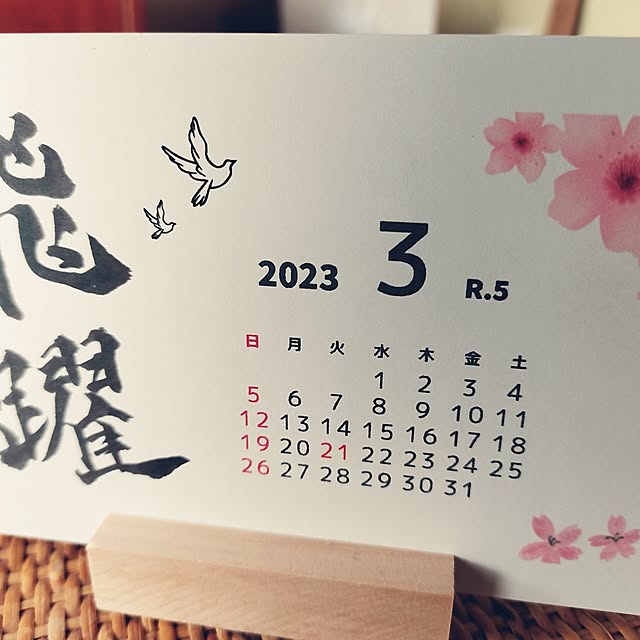 飛躍
2023 3 R.5
日 月 火 水 木 金 土
1 2 3 4
5 6 7 8 9 10 11
12 13 14 15 16 17 18
19 20 21 22 23 24 25
26 27 28 29 30 31